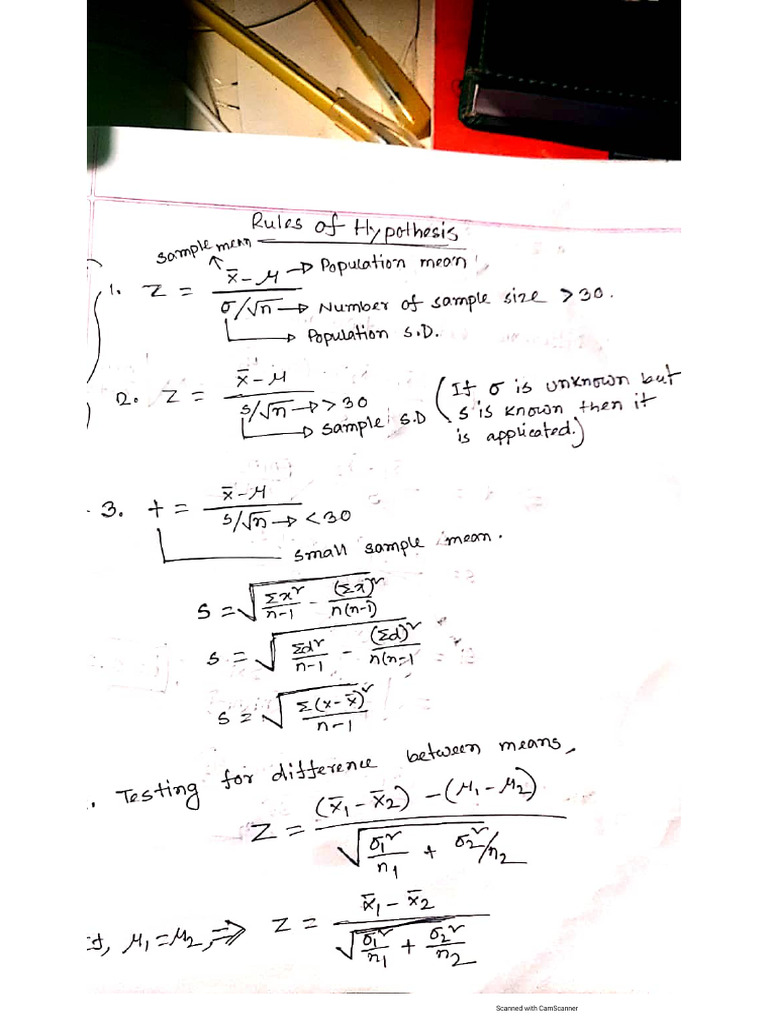 Rules of Hypothesis
sample mean
1. Z = (x̄ - μ) / (σ/√n) → Population mean
→ Number of sample size > 30.
→ Population S.D.
2. Z = (x̄ - μ) / (s/√n) → > 30
→ sample S.D
(If σ is unknown but
s is known then it
is applicated.)
3. t = (x̄ - μ) / (s/√n) → < 30
small sample mean.
s = √(Σx²/(n-1) - (Σx)²/(n(n-1)))
s = √(Σd²/(n-1) - (Σd)²/(n(n-1))
s = √(Σ(x-x̄)²/(n-1))
. Testing for difference between means,
Z = ((x̄₁ - x̄₂) - (μ₁ - μ₂)) / √(σ₁²/n₁ + σ₂²/n₂)
μ₁=μ₂, ⇒ Z = (x̄₁ - x̄₂) / √(σ₁²/n₁ + σ₂²/n₂)
Scanned with CamScanner